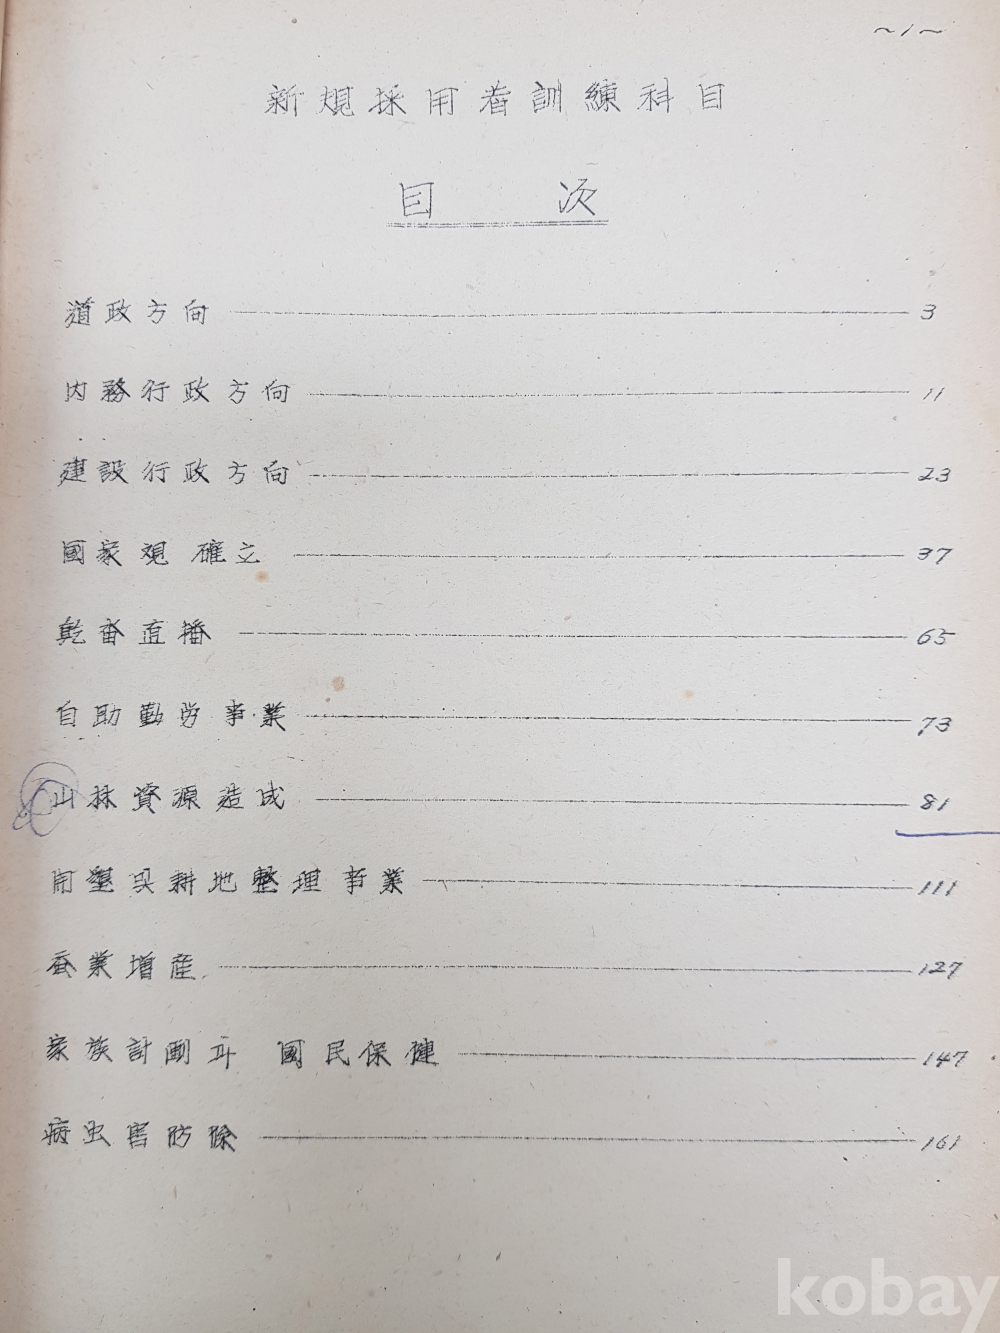 ~1~
新規採用者訓練科目
目 次
道政方向 3
内務行政方向 11
建設行政方向 23
國家観 確立 37
乾畓直播 65
自助勤労事業 73
山林資源造成 81
開墾 및 耕地整理事業 111
蚕業増産 127
家族計劃과 國民保健 147
病虫害防除 161
kobay